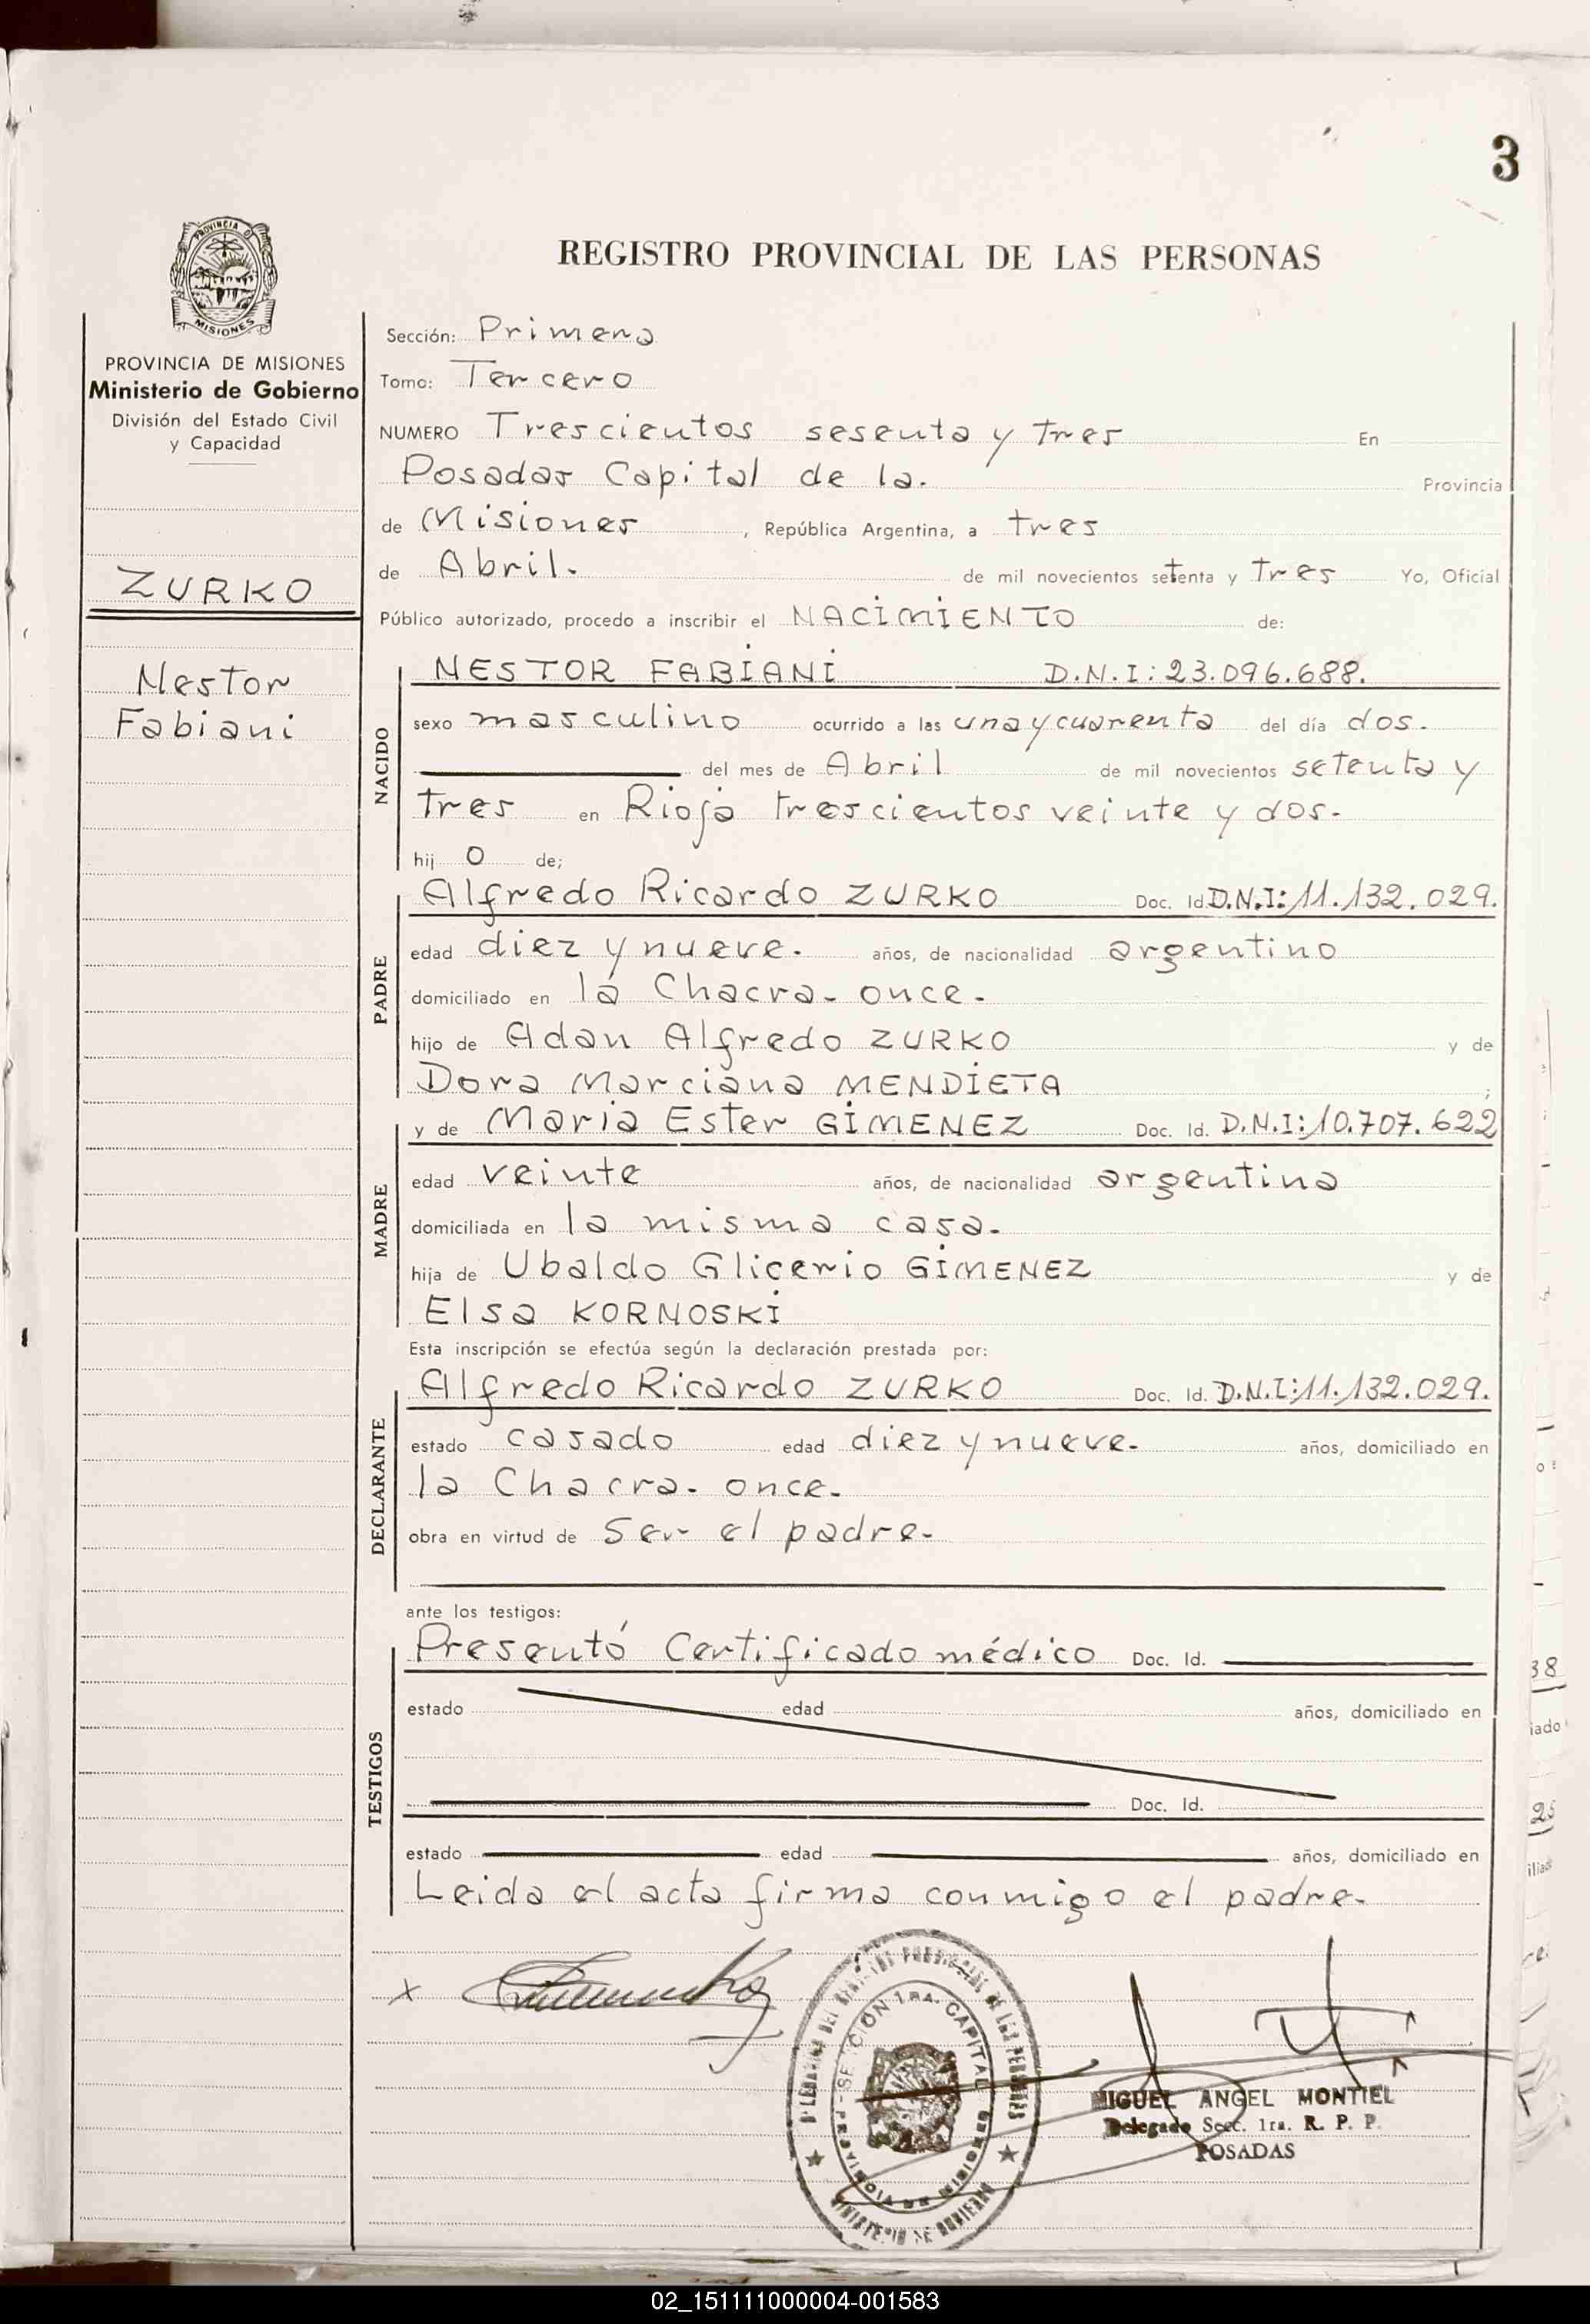 3
PROVINCIA D
MISIONES
REGISTRO PROVINCIAL DE LAS PERSONAS
PROVINCIA DE MISIONES
Ministerio de Gobierno
División del Estado Civil
y Capacidad
ZURKO
Nestor
Fabiani
Sección: Primera
Tomo: Tercero
NUMERO Trescientos sesenta y tres En
Posadas Capital de la. Provincia
de Misiones, República Argentina, a tres
de Abril. de mil novecientos setenta y tres Yo, Oficial
Público autorizado, procedo a inscribir el NACIMIENTO de:
NACIDO
NESTOR FABIANI D.N.I: 23.096.688.
sexo masculino ocurrido a las una y cuarenta del día dos.
del mes de Abril de mil novecientos setenta y
tres en Rioja trescientos veinte y dos.
hij o de;
PADRE
Alfredo Ricardo ZURKO Doc. Id D.N.I: 11.132.029.
edad diez y nueve. años, de nacionalidad argentino
domiciliado en la Chacra- once-
hijo de Adan Alfredo ZURKO y de
Dora Marciana MENDIETA ;
MADRE
y de Maria Ester GIMENEZ Doc. Id. D.N.I: 10.707.622
edad veinte años, de nacionalidad argentina
domiciliada en la misma casa.
hija de Ubaldo Glicerio GIMENEZ y de
Elsa KORNOSKI
Esta inscripción se efectúa según la declaración prestada por:
DECLARANTE
Alfredo Ricardo ZURKO Doc. Id. D.N.I: 11.132.029.
estado casado edad diez y nueve- años, domiciliado en
la Chacra- once-
obra en virtud de Ser el padre-
ante los testigos:
TESTIGOS
Presentó Certificado médico Doc. Id.
estado edad años, domiciliado en
Doc. Id.
estado edad años, domiciliado en
Leida el acta firma conmigo el padre-
x
SECCION 1RA. CAPITAL
MIGUEL ANGEL MONTIEL
Delegado Secc. 1ra. R. P. P.
POSADAS
02_151111000004-001583